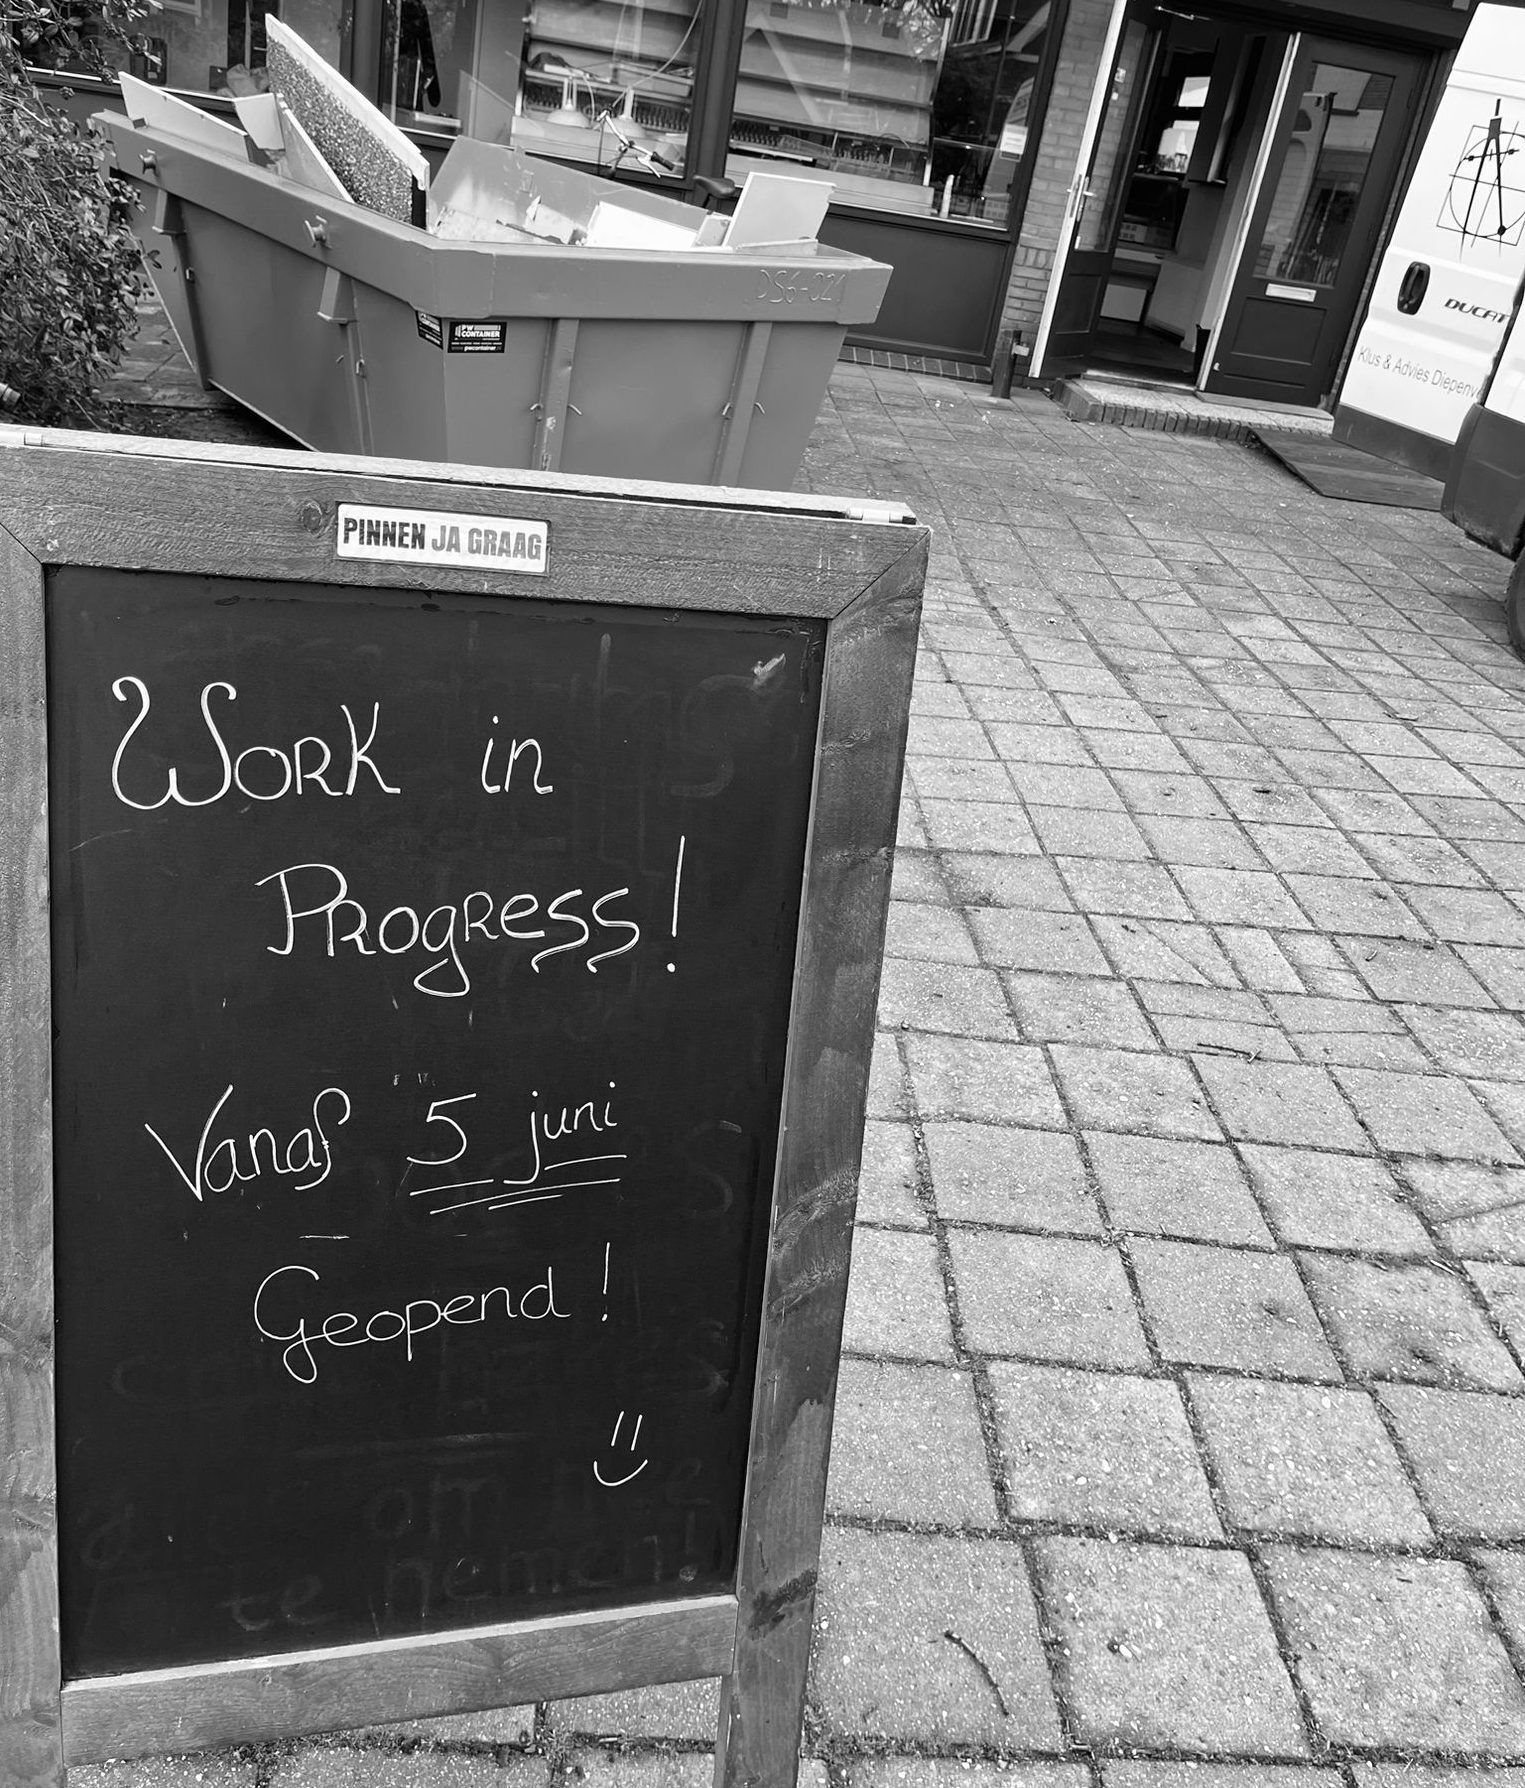 DS6-021
PW
CONTAINER
pwcontainer
DUCAT
Klus & Advies Diepenv
PINNEN JA GRAAG
Work in
Progress!
Vanaf 5 juni
Geopend!
om
te nemen!